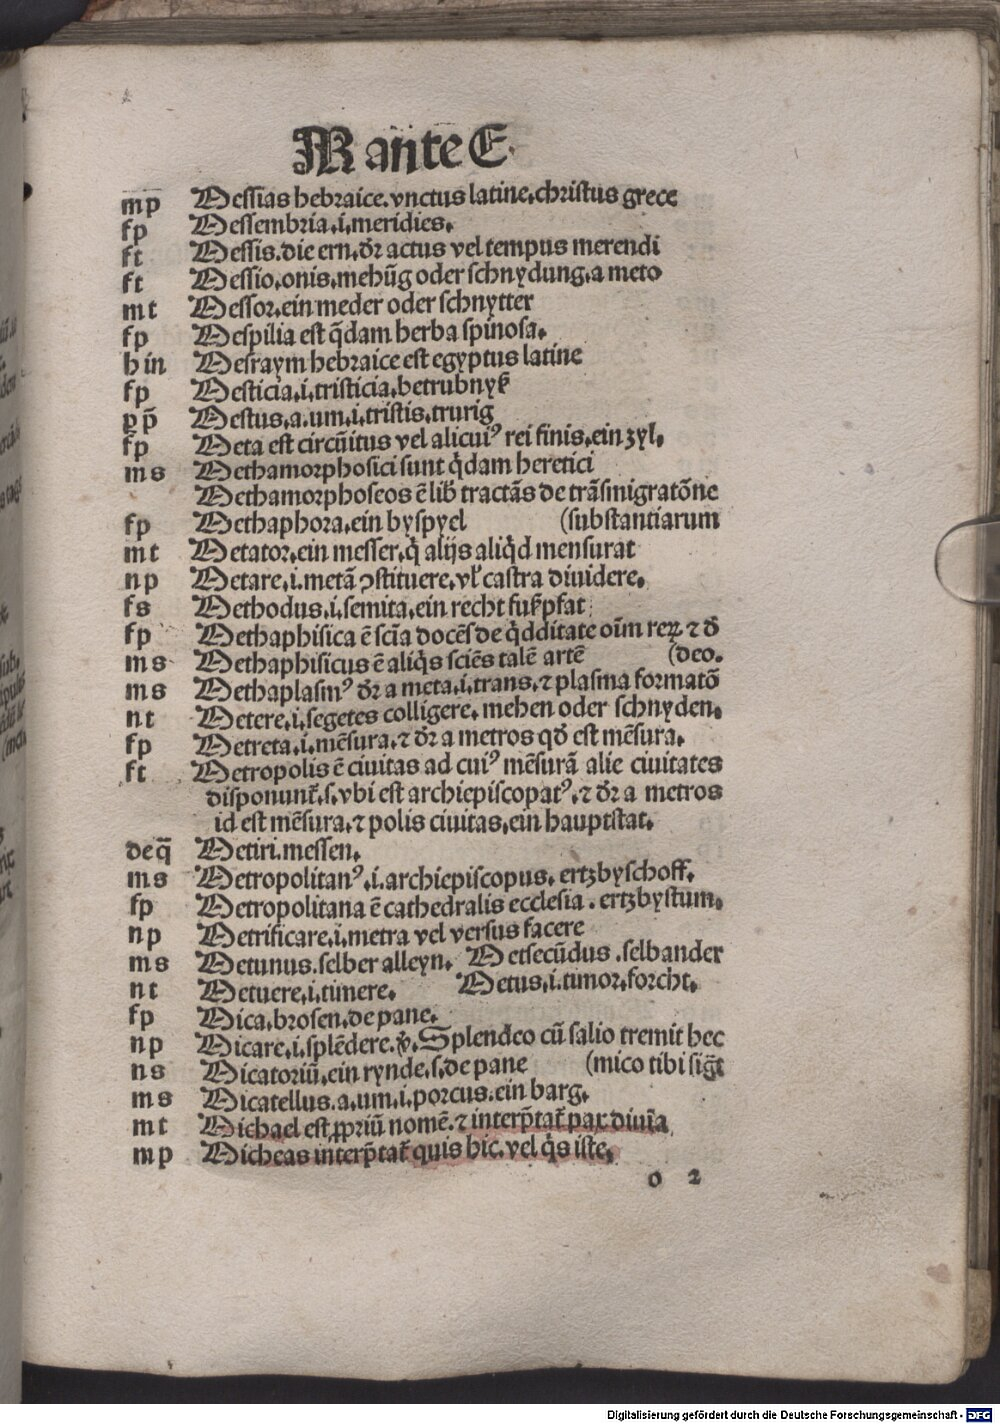 M añte E.
mp Messias hebraice. vnctus latine. christus grece
fp Messembria .i. meridies.
ft Messis. die ern. dr̄ actus vel tempus merendi
ft Messio. onis. mehūg oder schnydung. a meto
mt Messor. ein meder oder schnytter
fp Mespilia est q̄dam herba spinosa.
h in Mesraym hebraice est egyptus latine
fp Mesticia .i. tristicia. betrubnyß
p p̄ Mestus. a. um. i. tristis. trurig
fp Meta est circūitus vel alicuiꝰ rei finis. ein zyl.
ms Methamorphosici sunt q̄dam heretici
Methamorphoseos ē lib̄ tractās de trāsmigratōne
fp Methaphora. ein byspyel (substantiarum
mt Metator. ein messer. q̇ alijs aliq̇d mensurat
np Metare .i. metā ꝯstituere. vl̄ castra diuidere.
fs Methodus .i. semita. ein recht fußpfat
fp Methaphisica ē scīa docēs de q̇dditate oīm reꝝ ⁊ d̄
ms Methaphisicus ē aliq̇s sciēs talē artē (deo.
ms Methaplasmꝰ dr̄ a meta .i. trans. ⁊ plasma formatō
nt Metere .i. segetes colligere. mehen oder schnyden.
fp Metreta .i. mēsura. ⁊ dr̄ a metros qd̄ est mēsura.
ft Metropolis ē ciuitas ad cuiꝰ mēsurā alie ciuitates
disponunt̄ .s. vbi est archiepiscopatꝰ. ⁊ dr̄ a metros
id est mēsura. ⁊ polis ciuitas. ein hauptstat.
deq̄ Metiri. messen.
ms Metropolitanꝰ .i. archiepiscopus. ertzbyschoff.
fp Metropolitana ē cathedralis ecclesia. ertzbystum.
np Metrificare .i. metra vel versus facere
ms Metunus. selber alleyn. Metsecūdus. selbander
nt Metuere .i. timere. Metus .i. timor. forcht.
fp Mica. brosen. de pane.
np Micare .i. splēdere. ꝟ. Splendeo cū salio tremit hec
ns Micatoriū. ein rynde. s. de pane (mico tibi sigt̄
ms Micatellus. a. um. i. porcus. ein barg.
mt Michael est ꝓpriū nomē. ⁊ interp̄tat̄ pax diuīa
mp Micheas interp̄tat̄ quis hic. vel q̇s iste.
o 2
Digitalisierung gefördert durch die Deutsche Forschungsgemeinschaft - DFG